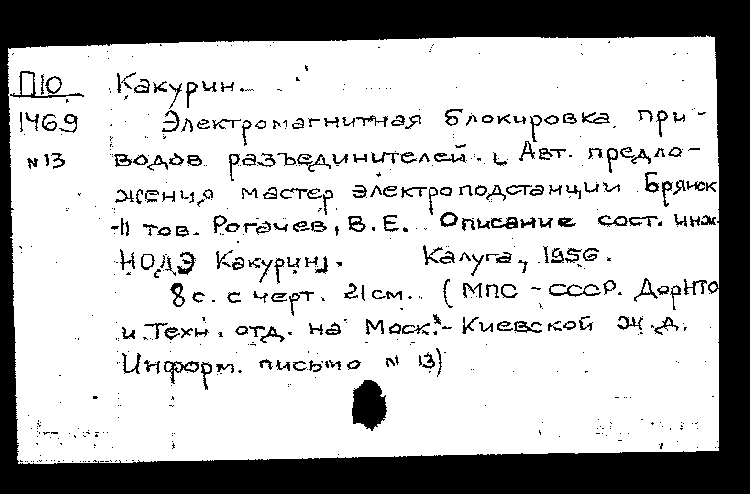 П10 Какурин.
1469 Электромагнитная блокировка при-
N13 водов разъединителей. Авт. предло-
жения мастер электроподстанции Брянск
-II тов. Рогачев, В.Е. Описание сост. инж.
НОДЭ Какурин]. Калуга, 1956.
8 с. с черт. 21 см. (МПС - СССР. ДорНТО
и Техн. отд. на Моск.-Киевской ж.д.
Информ. письмо N 13)